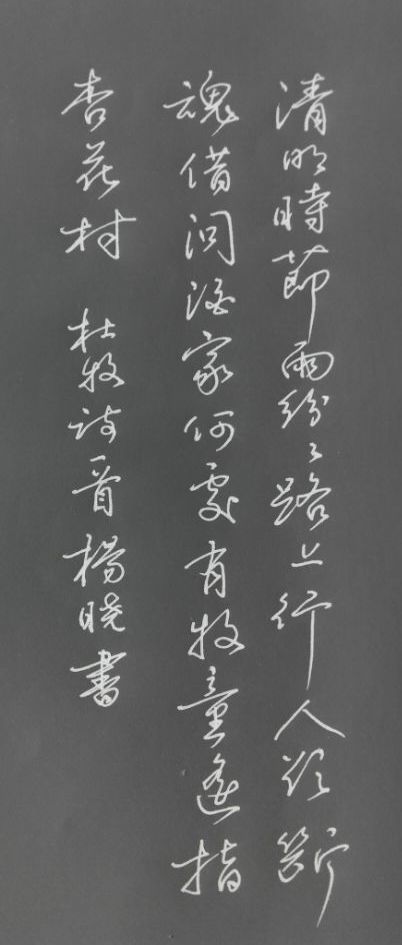 清明時節雨紛々路上行人欲斷
魂借問酒家何處有牧童遙指
杏花村 杜牧诗一首 楊晓書